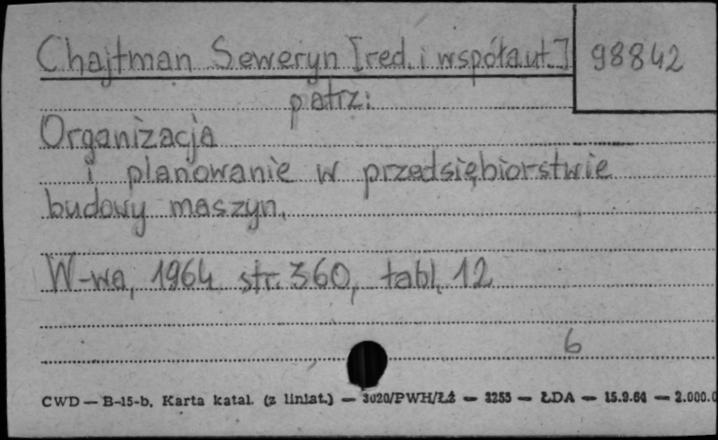 Chajtman Seweryn [red. i współaut.] 98842
patrz:
Organizacja
i planowanie w przedsiębiorstwie
budowy maszyn.
W-wa, 1964 str. 360, tabl. 12
6
CWD — B-15-b. Karta katal. (z liniat.) — 3020/PWH/Łź — 3255 — ŁDA — 15.9.64 — 2.000.0